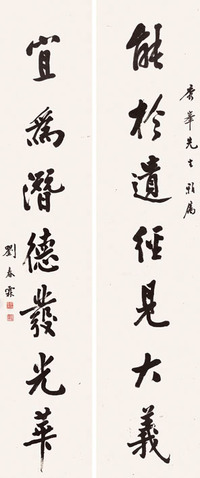 秀峯先生雅属
能於遺經見大義
宜為潛德發光華
劉春霖